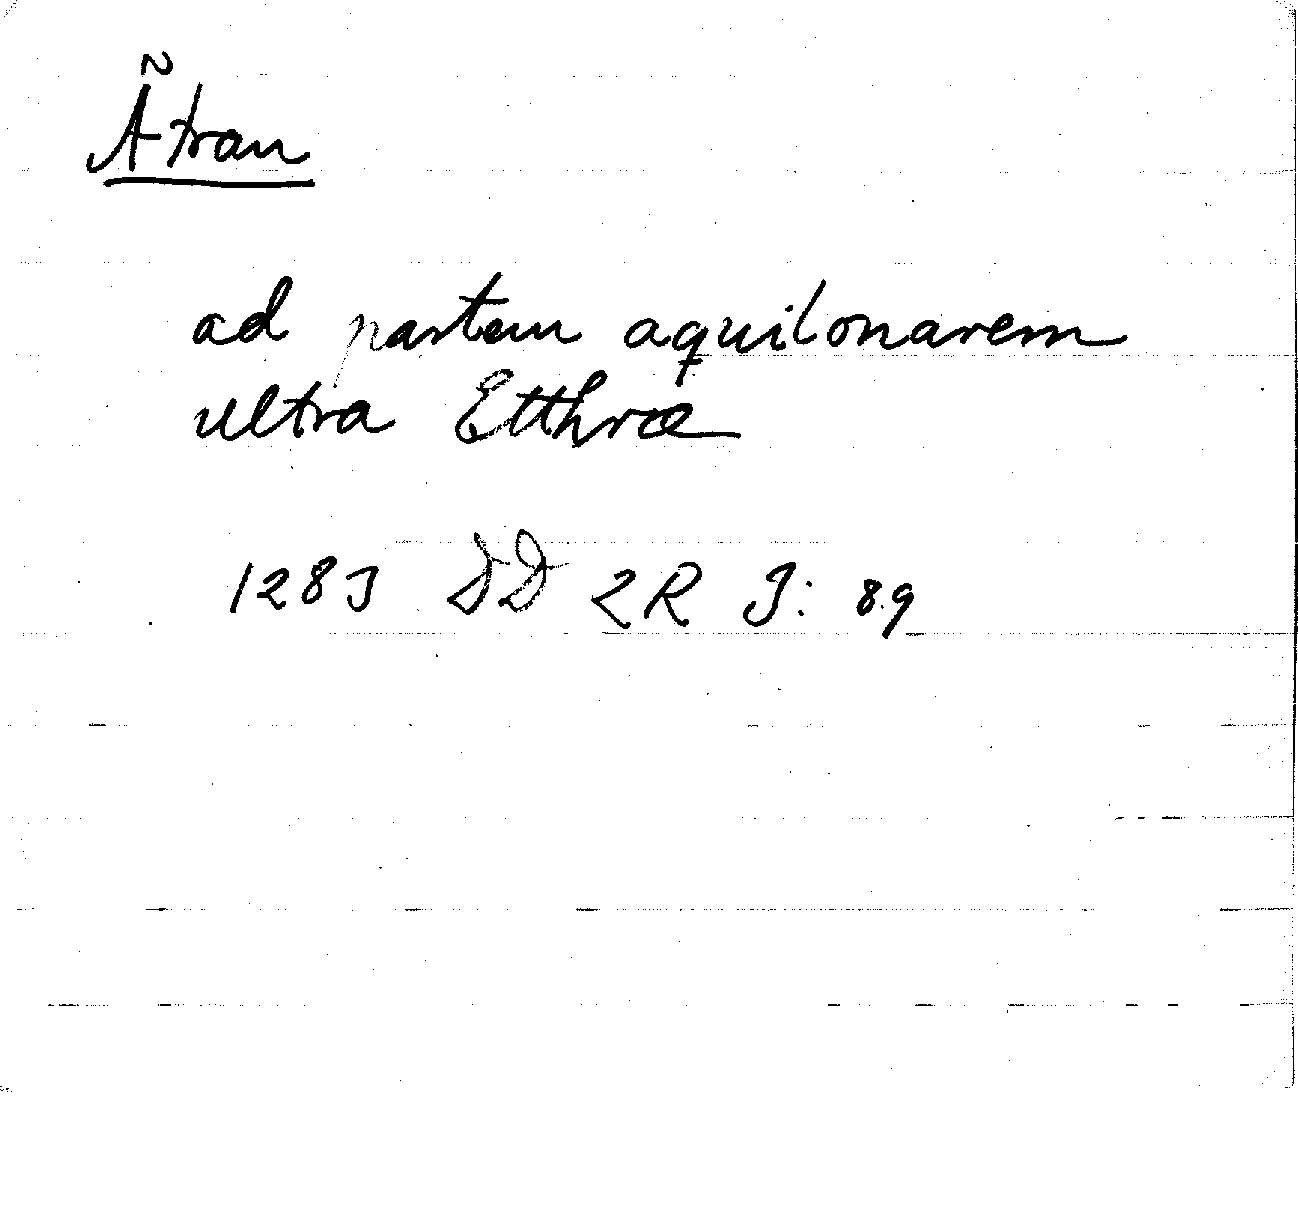 Ätran
ad partem aquilonarem
ultra Etthræ
1283 DD 2R 3: 89